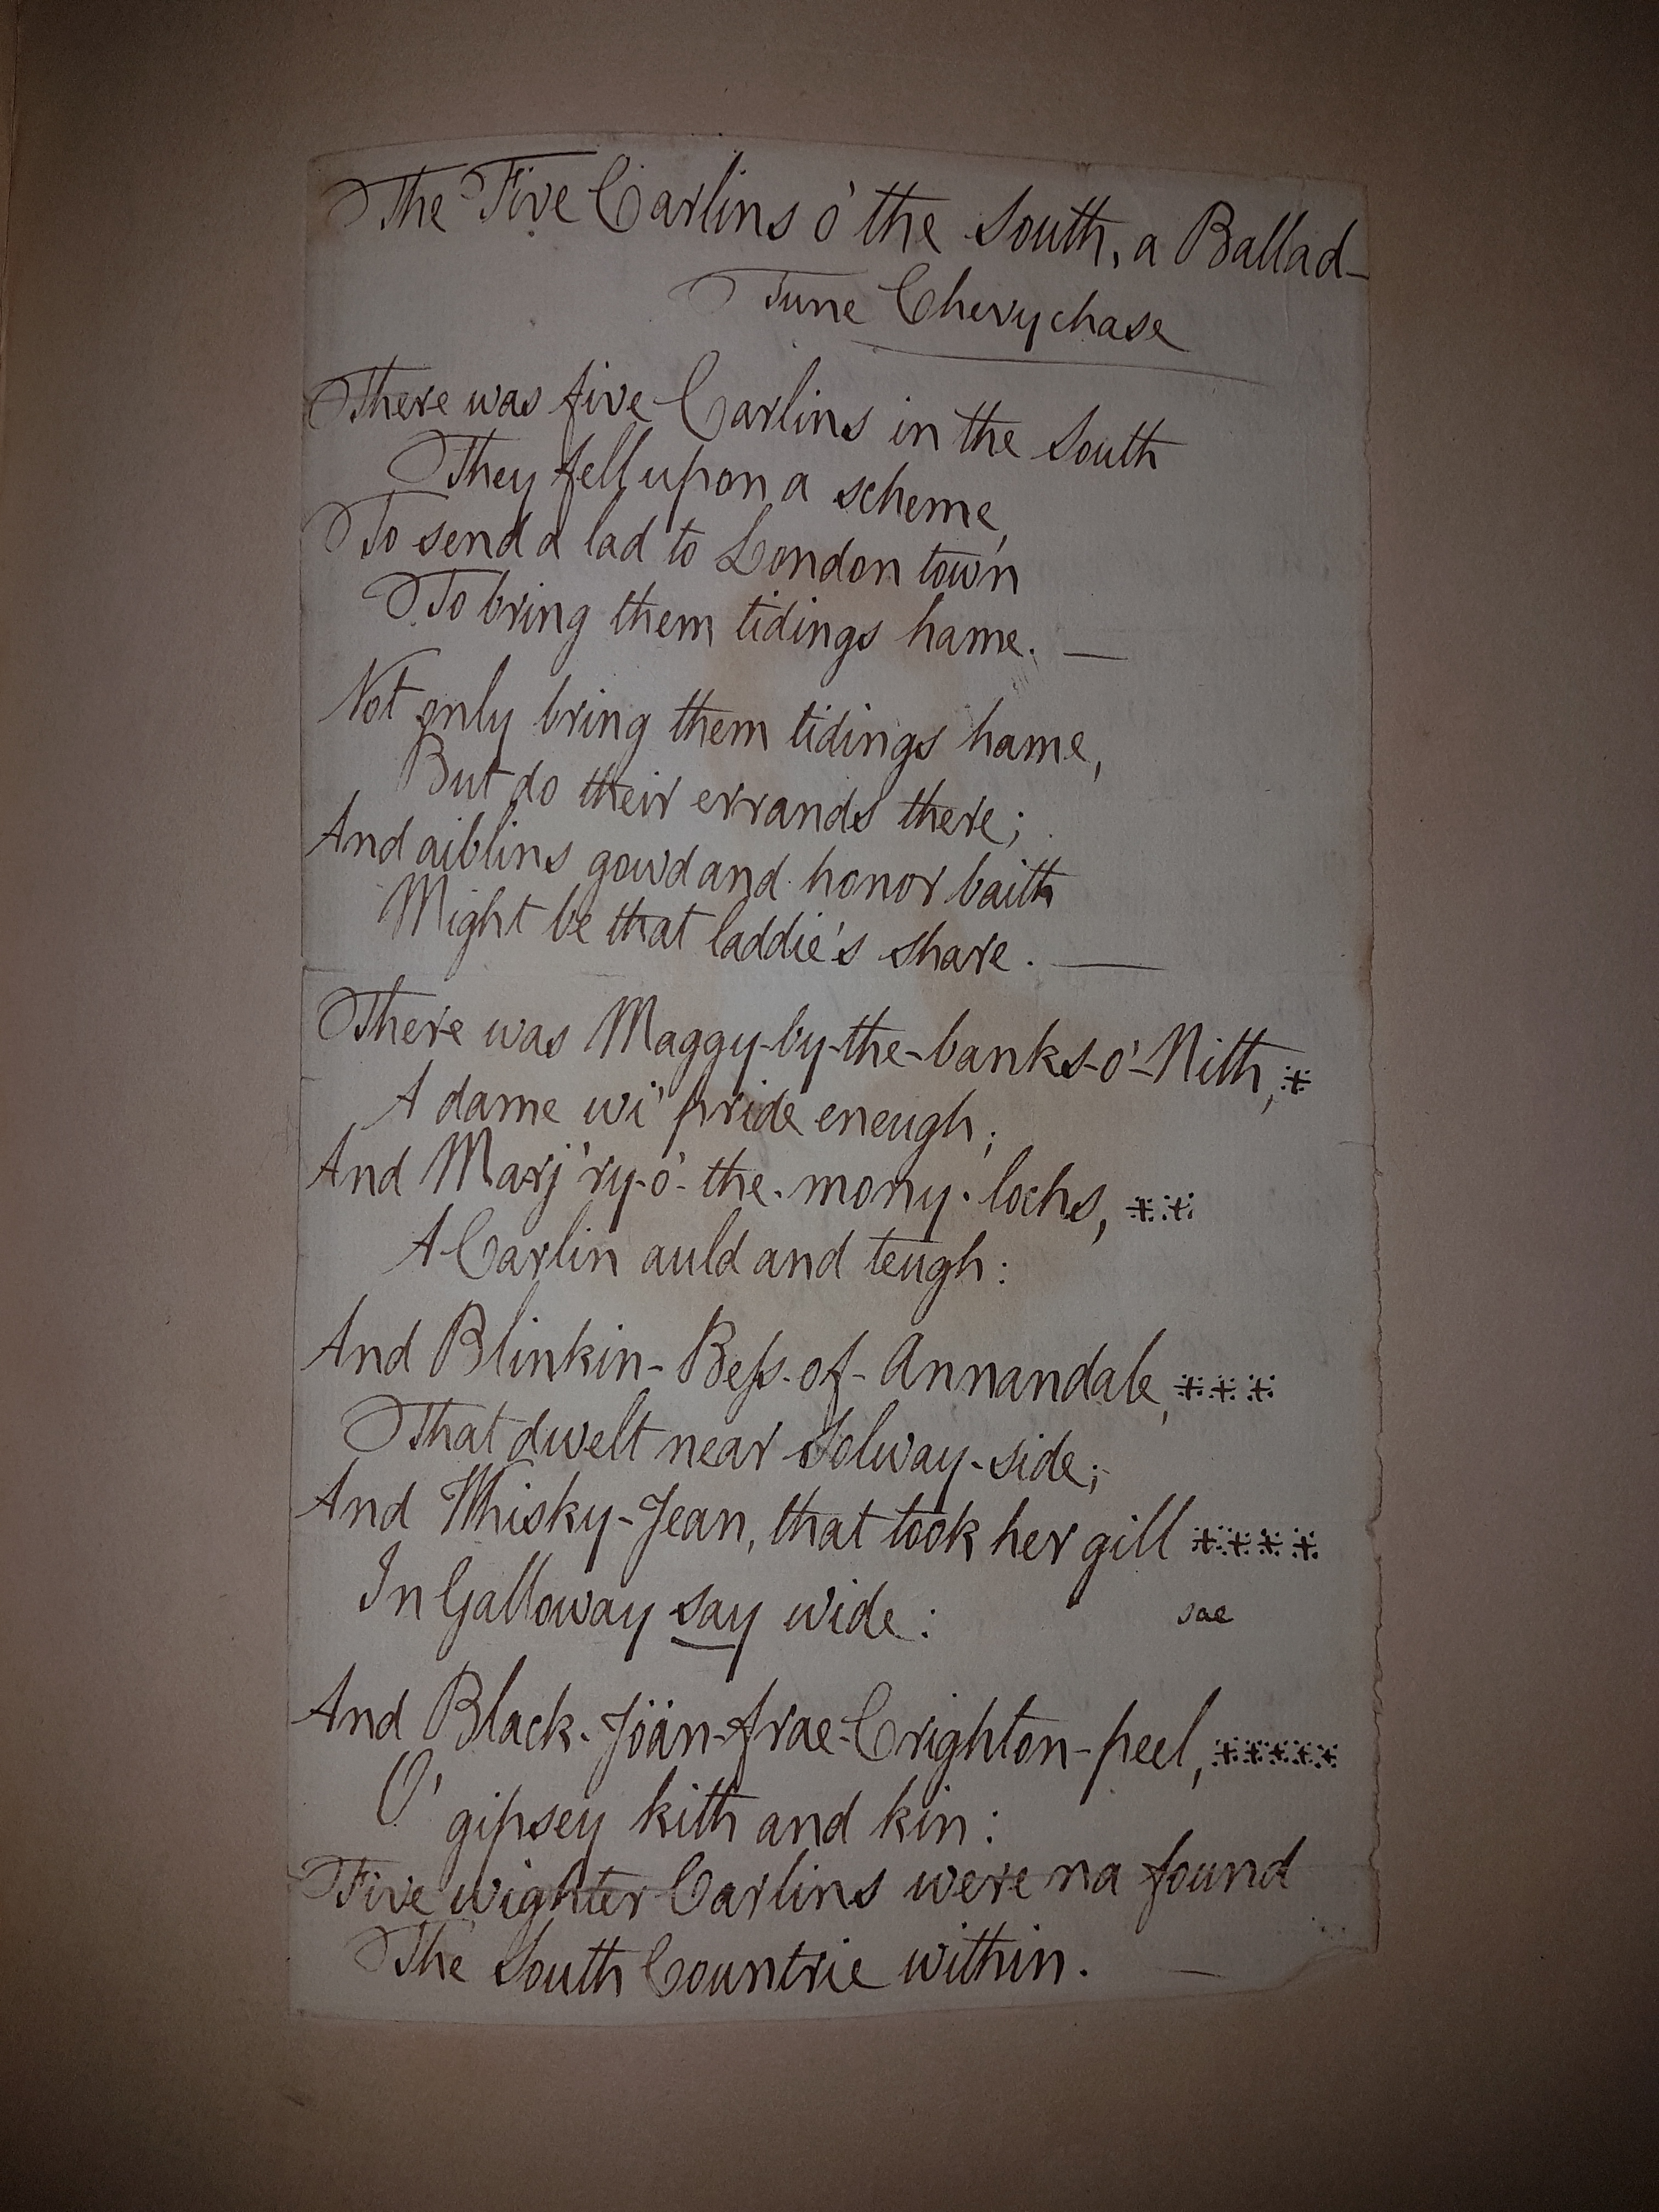 The Five Carlins o' the South, a Ballad—
Tune Chevychase
There was five Carlins in the South
They fell upon a scheme,
To send a lad to London town
To bring them tidings hame. —
Not only bring them tidings hame,
But do their errands there;
And aiblins gowd and honor baith
Might be that laddie's share. —
There was Maggy-by-the-banks-o'-Nith, *
A dame wi' pride eneugh;
And Marj'ry-o'-the-mony-lochs, **
A Carlin auld and teugh:
And Blinkin-Beſs-of-Annandale, ***
That dwelt near Solway-side;
And Whisky-Jean, that took her gill ****
In Galloway say wide: sae
And Black-Jöän-frae-Crighton-peel, *****
O' gipsey kith and kin:
Five wighter Carlins were na found
The South Countrie within. —